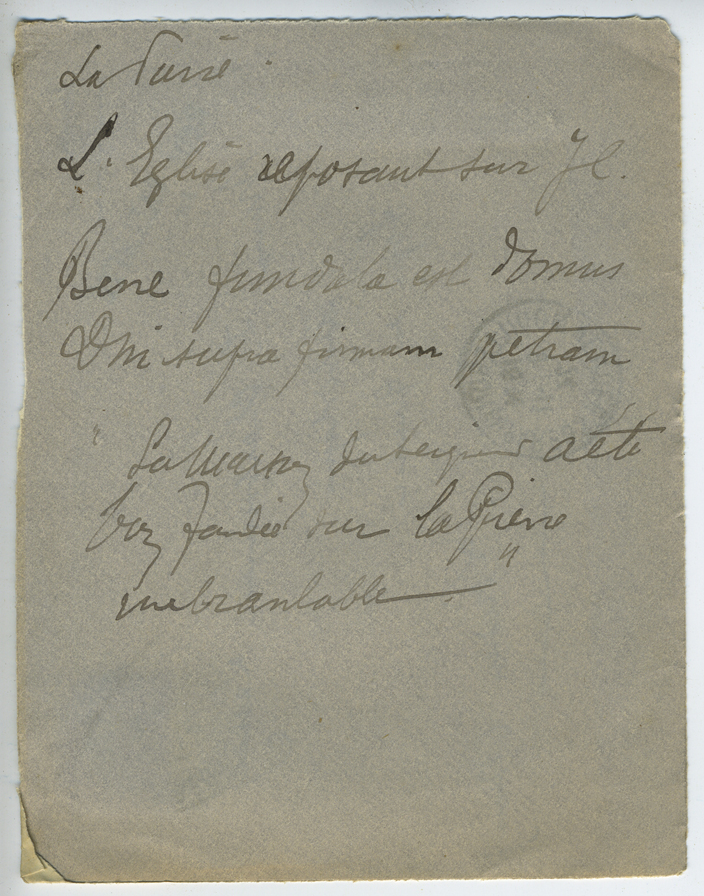 La
L'Eglise reposant sur JC.
Bene fundata est domus
Dni supra firmam petram
"La maison du Seigneur a été
bien fondée sur la Pierre
inebranlable"